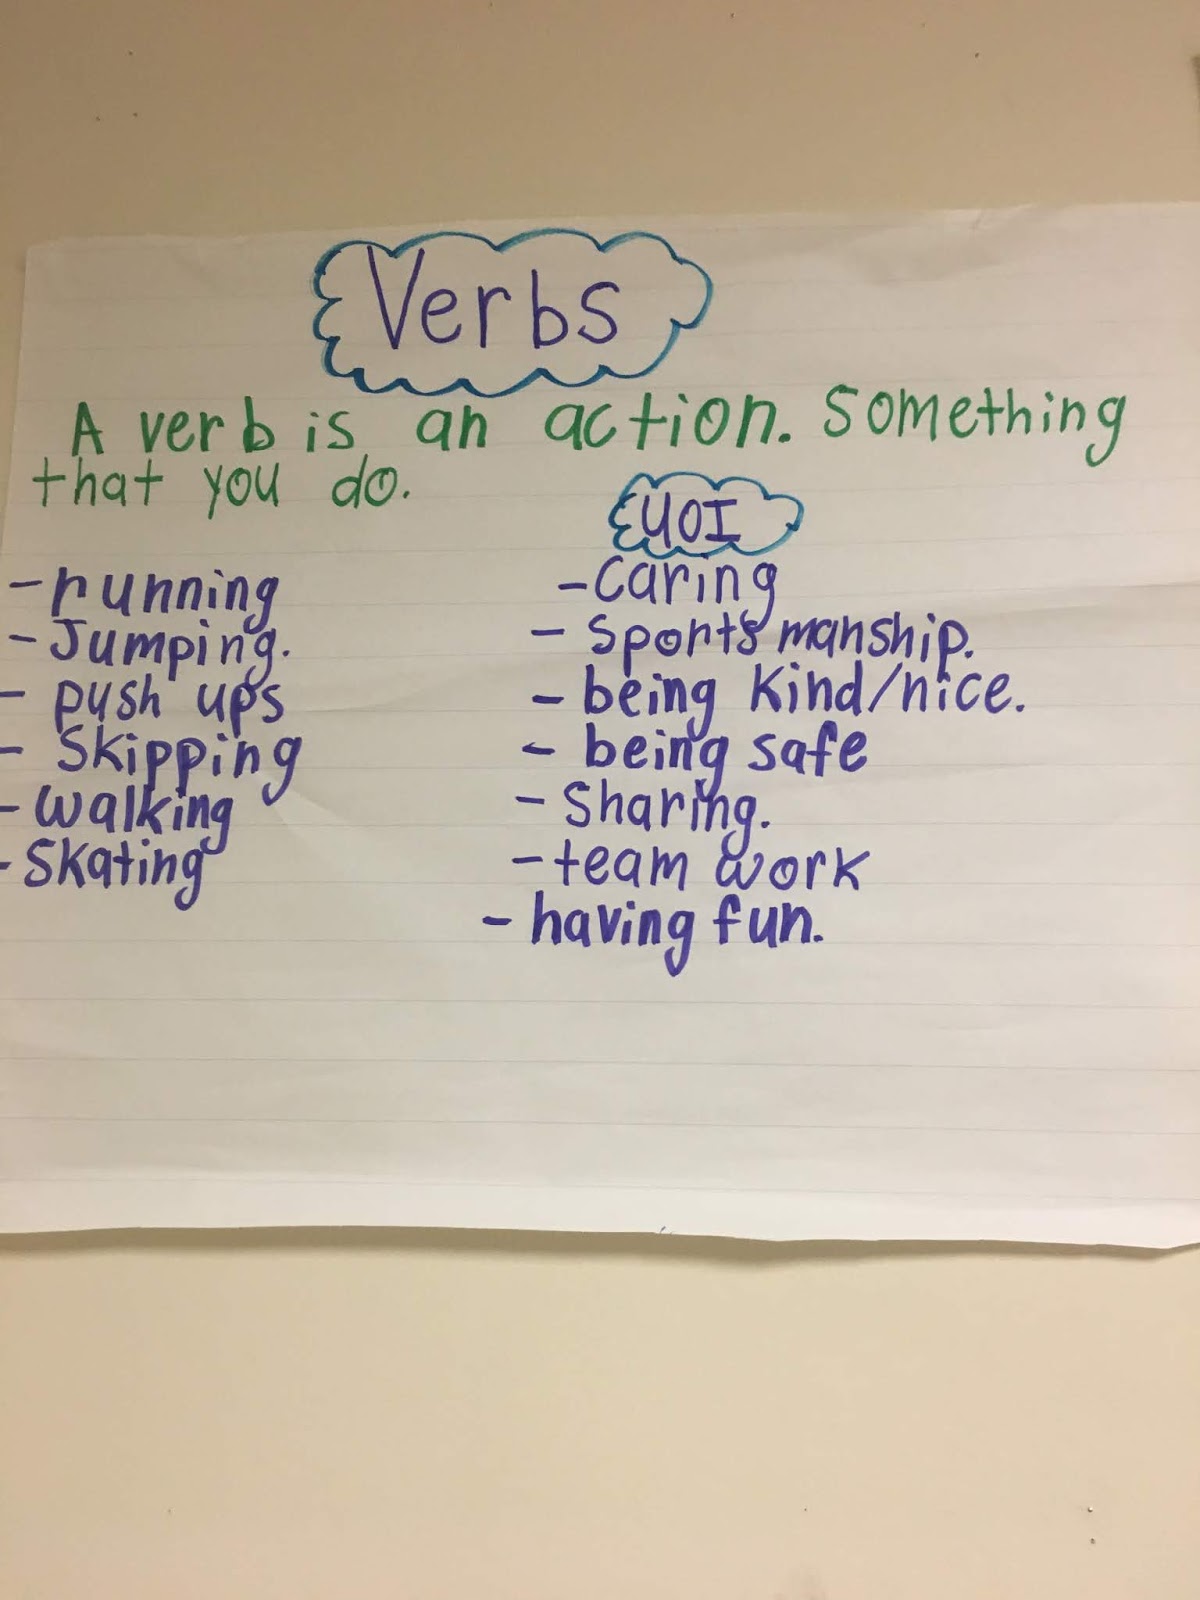 Verbs
A verb is an action. Something
that you do.
- running
- Jumping.
- push ups
- Skipping
- walking
- Skating
UOI
- Caring
- Sportsmanship.
- being Kind/nice.
- being safe
- Sharing.
- team work
- having fun.